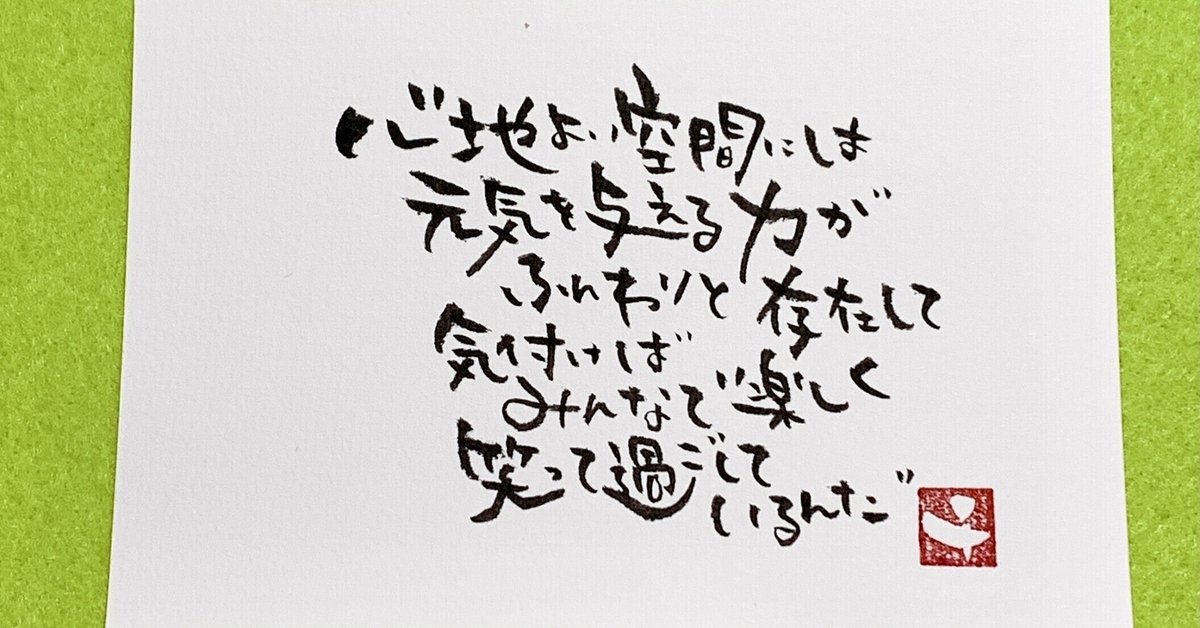 心地よい空間には
元気を与える力が
ふんわりと存在して
気付けば
みんなで楽しく
笑って過ごして
いるんだ